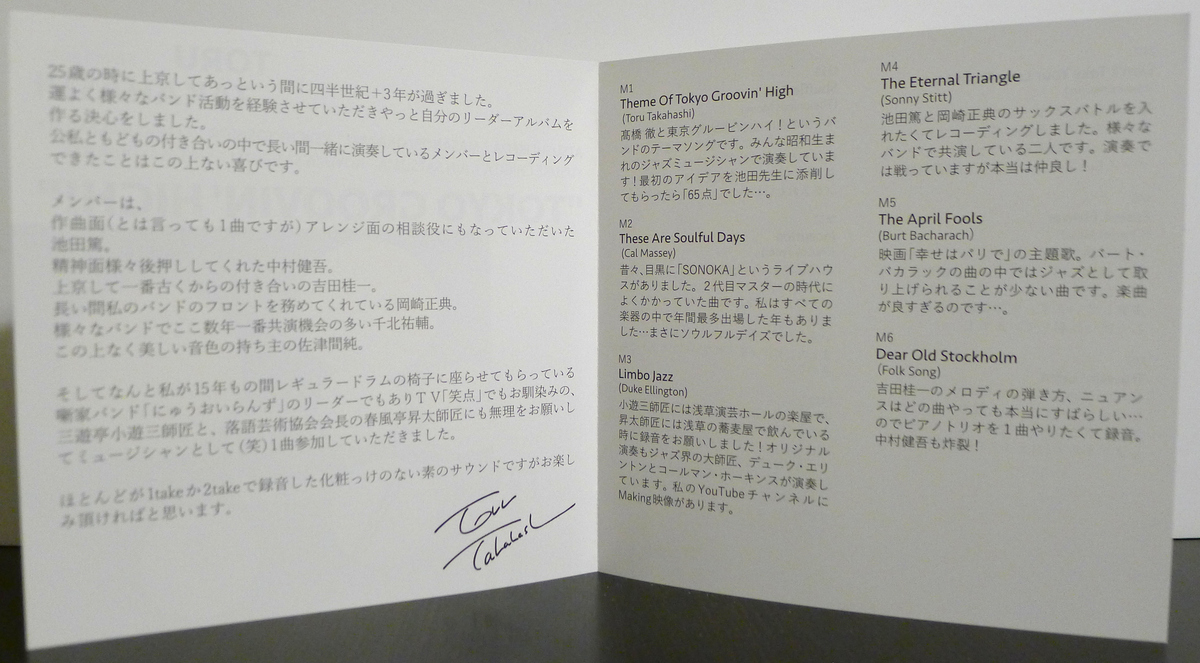 25歳の時に上京してあっという間に四半世紀+3年が過ぎました。
運よく様々なバンド活動を経験させていただきやっと自分のリーダーアルバムを
作る決心をしました。
公私ともどもの付き合いの中で長い間一緒に演奏しているメンバーとレコーディング
できたことはこの上ない喜びです。
メンバーは、
作曲面(とは言っても1曲ですが)アレンジ面の相談役にもなっていただいた
池田篤。
精神面様々後押ししてくれた中村健吾。
上京して一番古くからの付き合いの吉田桂一。
長い間私のバンドのフロントを務めてくれている岡崎正典。
様々なバンドでここ数年一番共演機会の多い千北祐輔。
この上なく美しい音色の持ち主の佐津間純。
そしてなんと私が15年もの間レギュラードラムの椅子に座らせてもらっている
噺家バンド「にゅうおいらんず」のリーダーでもありTV「笑点」でもお馴染みの、
三遊亭小遊三師匠と、落語芸術協会会長の春風亭昇太師匠にも無理をお願いし
てミュージシャンとして(笑)1曲参加していただきました。
ほとんどが1takeか2takeで録音した化粧っけのない素のサウンドですがお楽し
み頂ければと思います。
Toru
Takahashi
M1
Theme Of Tokyo Groovin' High
(Toru Takahashi)
髙橋 徹と東京グルービンハイ!というバ
ンドのテーマソングです。みんな昭和生ま
れのジャズミュージシャンで演奏していま
す!最初のアイデアを池田先生に添削し
てもらったら「65点」でした…。
M2
These Are Soulful Days
(Cal Massey)
昔々、目黒に「SONOKA」というライブハウ
スがありました。2代目マスターの時代に
よくかかっていた曲です。私はすべての
楽器の中で年間最多出場した年もありま
した…まさにソウルフルデイズでした。
M3
Limbo Jazz
(Duke Ellington)
小遊三師匠には浅草演芸ホールの楽屋で、
昇太師匠には浅草の蕎麦屋で飲んでいる
時に録音をお願いしました!オリジナル
演奏もジャズ界の大師匠、デューク・エリ
ントンとコールマン・ホーキンスが演奏し
ています。私のYouTubeチャンネルに
Making映像があります。
M4
The Eternal Triangle
(Sonny Stitt)
池田篤と岡崎正典のサックスバトルを入
れたくてレコーディングしました。様々な
バンドで共演している二人です。演奏で
は戦っていますが本当は仲良し!
M5
The April Fools
(Burt Bacharach)
映画「幸せはパリで」の主題歌。バート・
バカラックの曲の中ではジャズとして取
り上げられることが少ない曲です。楽曲
が良すぎるのです…。
M6
Dear Old Stockholm
(Folk Song)
吉田桂一のメロディの弾き方、ニュアン
スはどの曲やっても本当にすばらしい…
のでピアノトリオを1曲やりたくて録音。
中村健吾も炸裂!